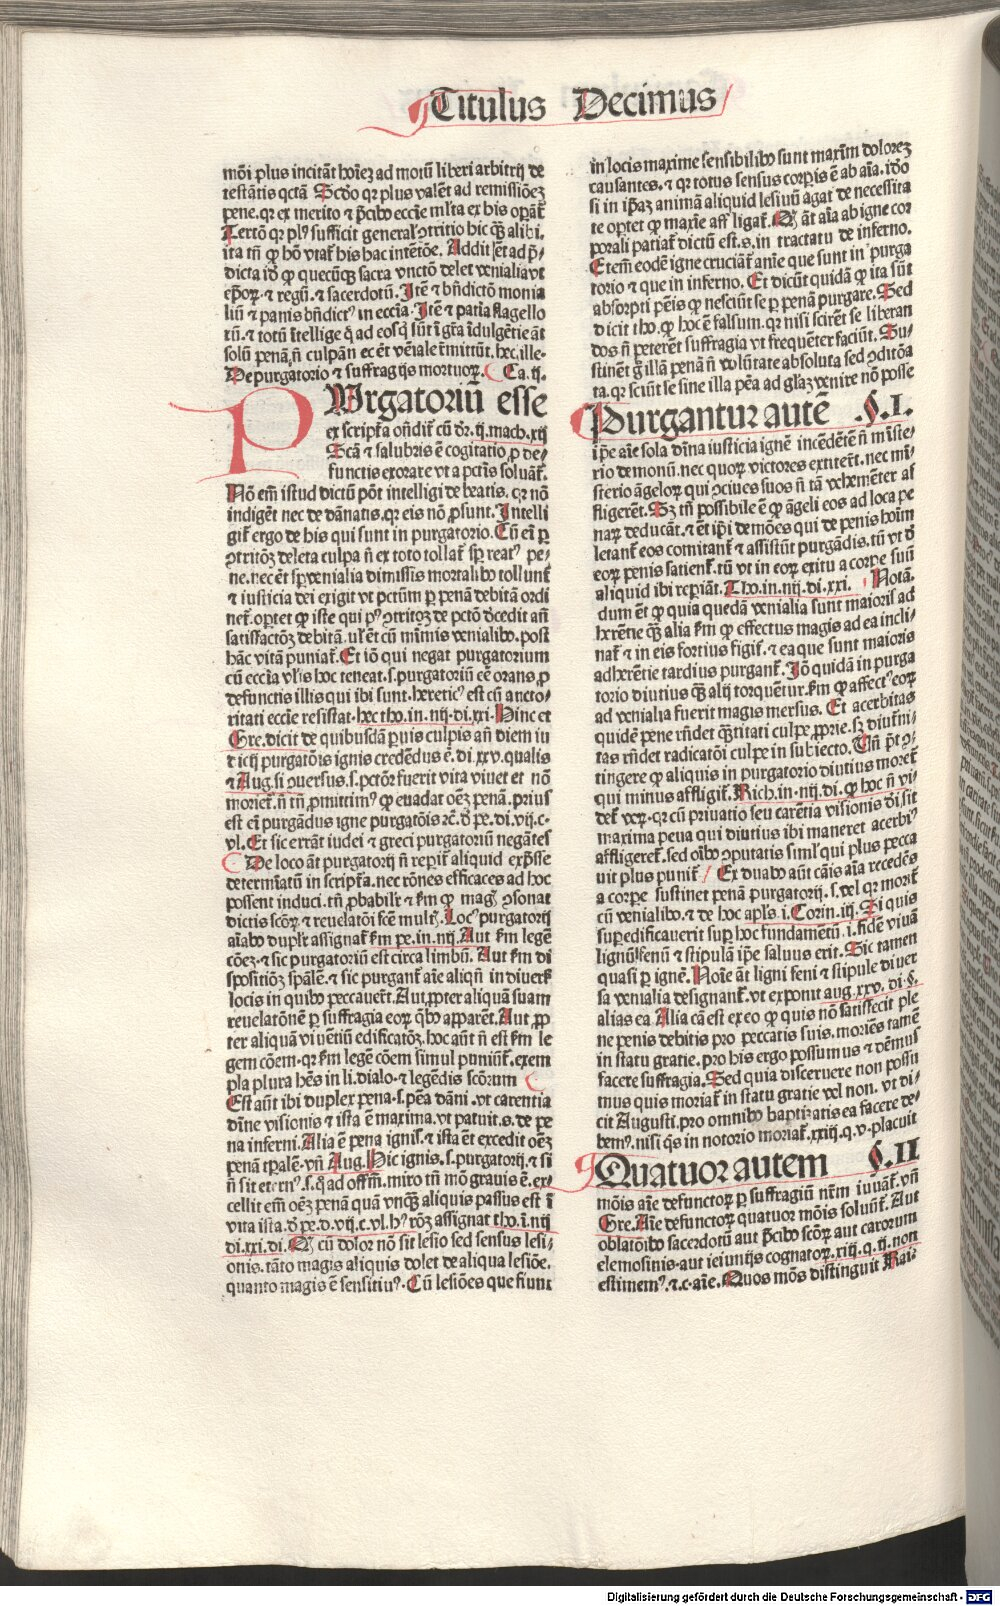 Titulus Decimus
mōi plus incitāt hoīez ad motū liberi arbitrij de
testātis qctā Scdo qr plus valēt ad remissiōez
pene. qr ex merito ⁊ p̄cibo eccīe ml'ta ex his opāt̄
Tertō qr plꝰ sufficit general' ꝯtritio hic qꝫ alibi,
ita tn̄ ꝙ hō vtat̄ his hac intētōe. Addit
dicta idō ꝙ quecūqꝫ sacra vnctō delet venialia vt
ep̄oꝝ. ⁊ regū. ⁊ sacerdotū. Itē ⁊ bn̄dictō monia
liū ⁊ panis bn̄dictꝰ in eccīa. Itē ⁊ patīa flagello
rū. ⁊ totū ītellige
solū penā. n̄ culpān ec ēt vēiale r̄mittūt. hec ille.
De purgatorio ⁊ suffragijs mortuoꝝ. Ca. ij.
PUrgatoriū esse
ex script̄a on̄dit̄ cū dr̄. ij. mach. xij
Scā ⁊ salubris ē cogitatio ꝓ de-
functis exorare vt a pctīs soluāt̄.
Nō em̄ istud dictū pōt intelligi de beatis. qr nō
indigēt nec de dānatis. qr eis nō ꝓsunt. Intelli
git̄ ergo de his qui sunt in purgatorio. Cū ei ꝑ
ꝯtritōz deleta culpa n̄ ex toto tollat̄ sꝑ reatꝰ pe-
ne. nec ēt sꝑ venialia dimissis mortalibꝰ tollunt̄
⁊ iusticia dei exigit vt pctūm ꝑ penā debitā ordi
net̄. oꝑtet ꝙ iste qui pꝰ ꝯtritōꝫ de pctō decedit an̄
satisfactōꝫ debitā. ul' ēt cū mīmis venialibꝰ. post
hāc vitā puniat̄. Et iō qui negat purgatorium
cū eccīa vl'is hoc teneat. s. purgatoriū eē orans ꝓ
defunctis illis qui ibi sunt. hereticꝰ est cū aucto-
ritati eccīe resistat. hec tho. in. iiij. di. xxi. Hinc et
Gre. dicit de quibusdā ꝑuis culpis an̄ diem iu
dicij purgatōis ignis credēdus ē. di. xxv. qualis
⁊ Aug. si ꝯuersus. s. pctōr fuerit vita viuet et nō
moriet̄. n̄ tn̄ ꝓmittimꝰ ꝙ euadat oēꝫ penā. prius
est ei purgādus igne purgatōis ⁊c̄. d̄ pe. di. vij. c.
vl. Et sic errāt iudei ⁊ greci purgatoriū negātes
De loco āt purgatorij n̄ reꝑit̄ aliquid expresse
determīatū in script̄a. nec rōnes efficaces ad hoc
possent induci. tn̄ ꝓbabilr̄ ⁊ fm ꝙ magꝭ ꝯsonat
dictis scōꝝ ⁊ reuelatōi fcē multꝭ. Locꝰ purgatorij
aīabꝰ duplr̄ assignat̄ fm pe. in. iiij. Aut fm legē
cōeꝫ. ⁊ sic purgatoriū est circa limbū. Aut fm di
spositiōꝫ sp̄alē. ⁊ sic purgant̄ aīe aliqn̄ in diuersꝭ
locis in quibꝰ peccauer̄t. Aut ꝓpter aliquā suam
reuelatōnē ꝑ suffragia eoꝝ qbꝰ apparēt. Aut ꝓp
ter aliquā viuētiū edificatōꝫ. hoc aūt n̄ est fm le
gem cōem. qr fm legē cōem simul puniūt̄. exem
pla plura hēs in li. dialo. ⁊ legēdis scōrum
Est aūt ibi duplex pena. s. pēa dāni. vt carentia
dīne visionis ⁊ ista ē maxima. vt patuit. s. de pe
na inferni. Alia ē pena ignis. ⁊ ista ēt excedit oēꝫ
penā tꝑalē. vn̄ Aug. Hic ignis. s. purgatorij. ⁊ si
n̄ sit eternꝰ. miro tn̄ mō grauis ē. ex-
cellit em̄ oēꝫ penā quā vnqꝫ aliquis passus est ī
vita ista. d̄ pe. d. vij. c. vl. hꝰ rōꝫ assignat tho. ī. iiij
di. xxi. di. cū dolor nō sit lesio sed sensus lesi-
onis. tāto magis aliquis dolet de aliqua lesiōe.
quanto magis ē sensitiuꝰ. Cū lesiōes que fiunt
in locis maxime sensibilibꝰ sunt maxim dolorez
causantes. ⁊ qr totus sensus corpis ē ab aīa. idō
si in ip̄az animā aliquid lesiuū agat de necessita
te oꝑtet ꝙ maxīe affligat̄. āt aīa ab igne cor
porali patiat̄ dictū est. s. in tractatu de inferno.
Et em̄ eodē igne cruciāt̄ anīe que sunt in purga
torio ⁊ que in inferno. Et dicūt quidā ꝙ ita sūt
absorpti pēis ꝙ nesciūt se ꝑ penā purgare. Sed
dicit tho. ꝙ hoc ē falsum. qr nisi scirēt se liberan
dos n̄ peterēt suffragia vt frequēter faciūt. Su-
stinēt g̊ illā penā n̄ volūtate absoluta sed ꝯditōa
ta. qr sciūt se sine illa pēa ad gl'iaꝫ venire nō posse
Purgantur autē .§. I.
ip̄e aīe sola dīna iusticia ignē incēdētē n̄ mīste-
rio demonū. nec quoꝝ victores extiter̄t. nec mī-
sterio āgeloꝝ qui ꝯciues suos n̄ tā vehemēter af
fligerēt. Sꝫ tn̄ possibile ē ꝙ āgeli eos ad loca pe
naꝝ deducāt. ⁊ ēt ip̄i demōes qui de penis hoīm
letant̄ eos comitant̄ ⁊ assistūt purgādis. tū vt d̄
eoꝝ penis satient̄. tū vt in eoꝝ exitu a corpe suū
aliquid ibi reꝑiāt. Tho. in. iiij. di. xxi. Notā.
dum ēt ꝙ quia quedā venialia sunt maioris ad
herētie qꝫ alia fm ꝙ effectus magis ad ea incli
nat̄ ⁊ in eis fortius figit̄. ⁊ ea que sunt maioris
adherētie tardius purgant̄. Iō quidā in purga
torio diutius qꝫ alij torquētur. fm ꝙ affectꝰ eoꝝ
ad venialia fuerit magis mersus. Et acerbitas
quidē pene rn̄det qꝫtitati culpe ꝓprie. sꝫ diuturni-
tas rn̄det radicatōi culpe in subiecto. Vn̄ pōt ꝯ-
tingere ꝙ aliquis in purgatorio diutius moret̄
qui minus affligit̄. Rich. in. iiij. di. ꝙ hoc n̄ vi-
det̄ veꝝ. qr cū priuatio seu carētia visionis di sit
maxima pena qui diutius ibi maneret acerbiꝰ
affligeret̄. sed oībꝰ ꝯputatis siml' qui plus pecca
uit plus punit̄. Ex duabꝰ aūt cāis aīa recedēs
a corpe sustinet penā purgatorij. s. vel qr morit̄
cū venialibꝰ. ⁊ de hoc apl's. i. Corin. iij. Si quis
supedificauerit sup hoc fundamētū. i. fidē viuā
lignū. fenū ⁊ stipulā ip̄e saluus erit. Sic tamen
quasi ꝑ ignē. Noīe āt ligni feni ⁊ stipule diuer
sa venialia designant̄. vt exponit aug. xxv. di. §.
alias ea. Alia cā est ex eo ꝙ quis nō satisfecit ple
ne penis debitis pro peccatis suis. moriēs tamē
in statu gratie. pro his ergo possumus ⁊ dēmus
facere suffragia. Sed quia discernere non possu
mus quis moriat̄ in statu gratie vel non. vt di-
cit Augusti. pro omnibꝰ baptizatis ea facere de-
bemꝰ. nisi qs in notorio moriat̄. xxiij. q. v. placuit
Quatuor autem §. II
mōis aīe defunctoꝝ ꝑ suffragiū nr̄m iuuāt̄. vn̄
Gre. Aīe defunctoꝝ quatuor mōis soluūt̄. Aut
oblatōibꝰ sacerdotū aut p̄cibꝰ scōꝝ aut carorum
elemosinis. aut ieiunijs cognatoꝝ. xiij. q. ij. non
estimemꝰ. ⁊.c. aīe. Quos mōs distinguit Rai-
Digitalisierung gefördert durch die Deutsche Forschungsgemeinschaft - DFG